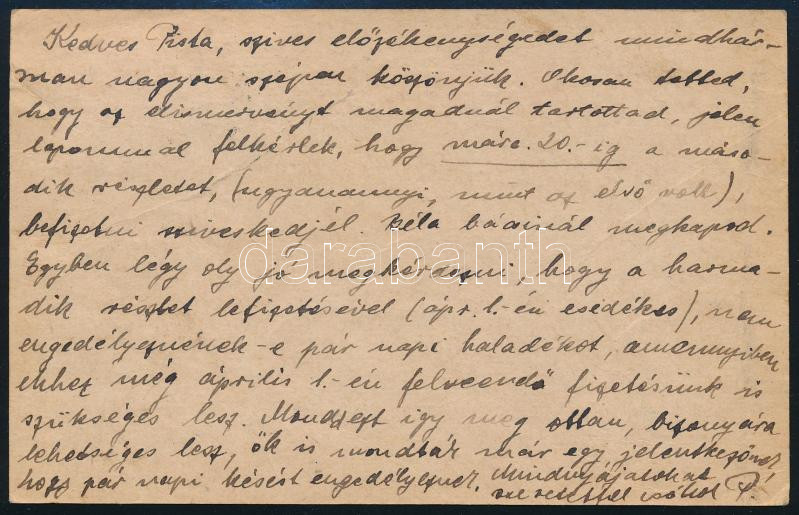 Kedves Pista, szives előzékenységedet mindhár-
man nagyon szépen köszönjük. Okosan tetted,
hogy az elismervényt magadnál tartottad, jelen
lapommal felkérlek, hogy márc. 20.-ig a máso-
dik részletet, (ugyanannyi, mint az első volt),
befizetni sziveskedjél. Béla bácsinál megkapod.
Egyben légy oly jó megkérdezni, hogy a harma-
dik részlet lefizetésével (ápr. 1.-én esedékes), nem
engedélyeznének-e pár napi haladékot, amennyiben
ehhez még április 1.-én felveendő fizetésünk is
szükséges lesz. Mondd ezt így meg ottan, bizonyára
lehetséges lesz, ők is mondták már egy jelentkezőnek
hogy pár napi késést engedélyeznek. Mindnyájatokat
szeretettel csókol P.
darabanth